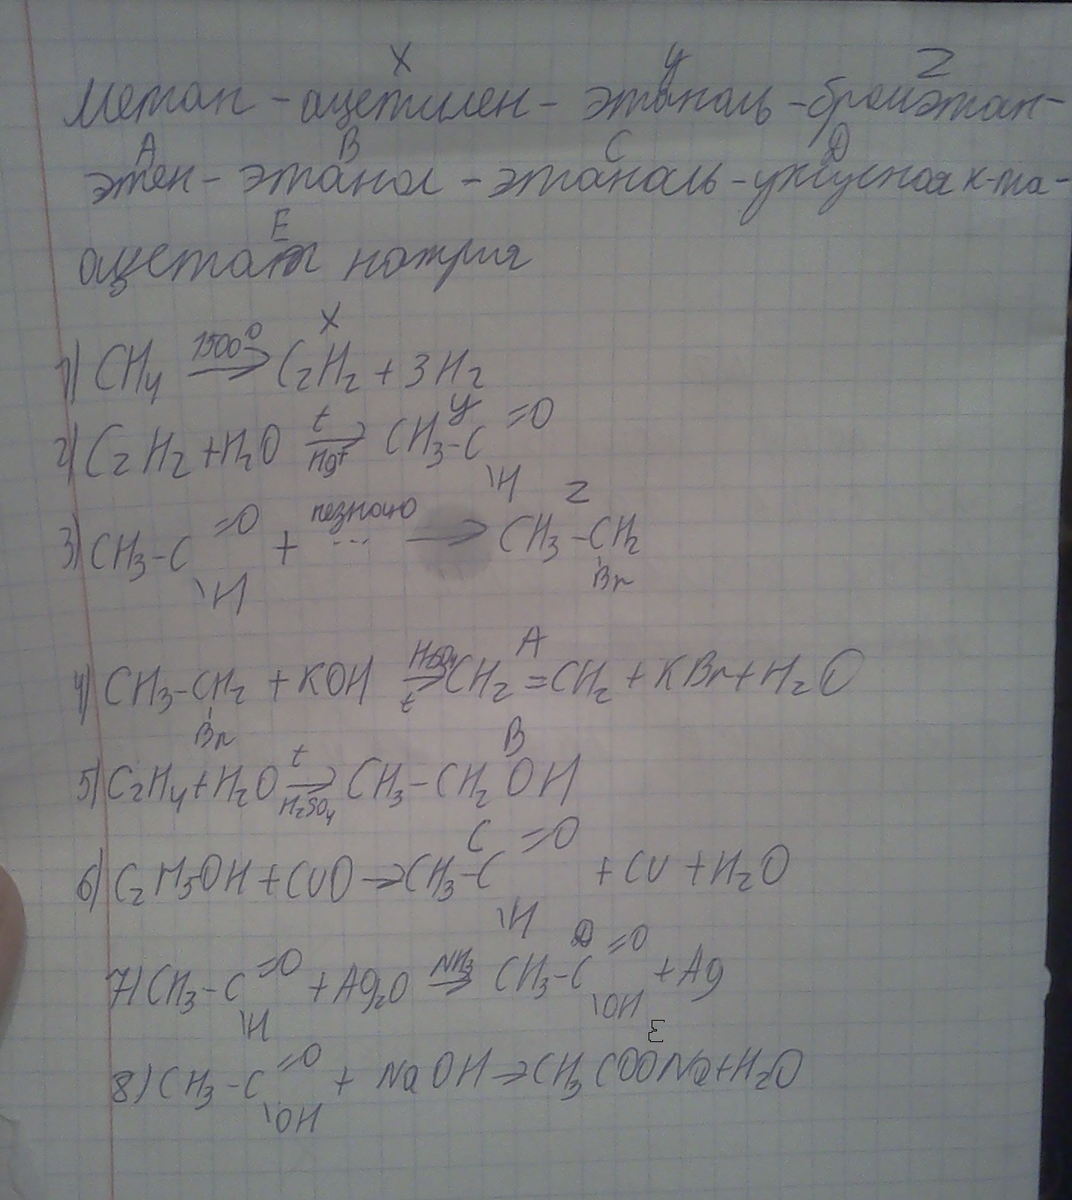 X У Z
Метан - ацетилен - этаналь - бромэтан -
A B C D
этен - этанол - этаналь - уксусная к-та -
E
ацетат натрия
X
1) CH4 1500° → C2H2 + 3H2
2) C2H2 + H2O t → Hg+ CH3-C =O \H У
3) CH3-C =O \H + незнаю ... → CH3-CH2 Br Z
4) CH3-CH2 Br + KOH H2SO4 → t CH2=CH2 + KBr + H2O A
5) C2H4 + H2O t → H2SO4 CH3-CH2OH B
6) C2H5OH + CuO → CH3-C =O \H + Cu + H2O C
7) CH3-C =O \H + Ag2O NH3 → CH3-C =O \OH + Ag D
8) CH3-C =O \OH + NaOH → CH3COONa + H2O E